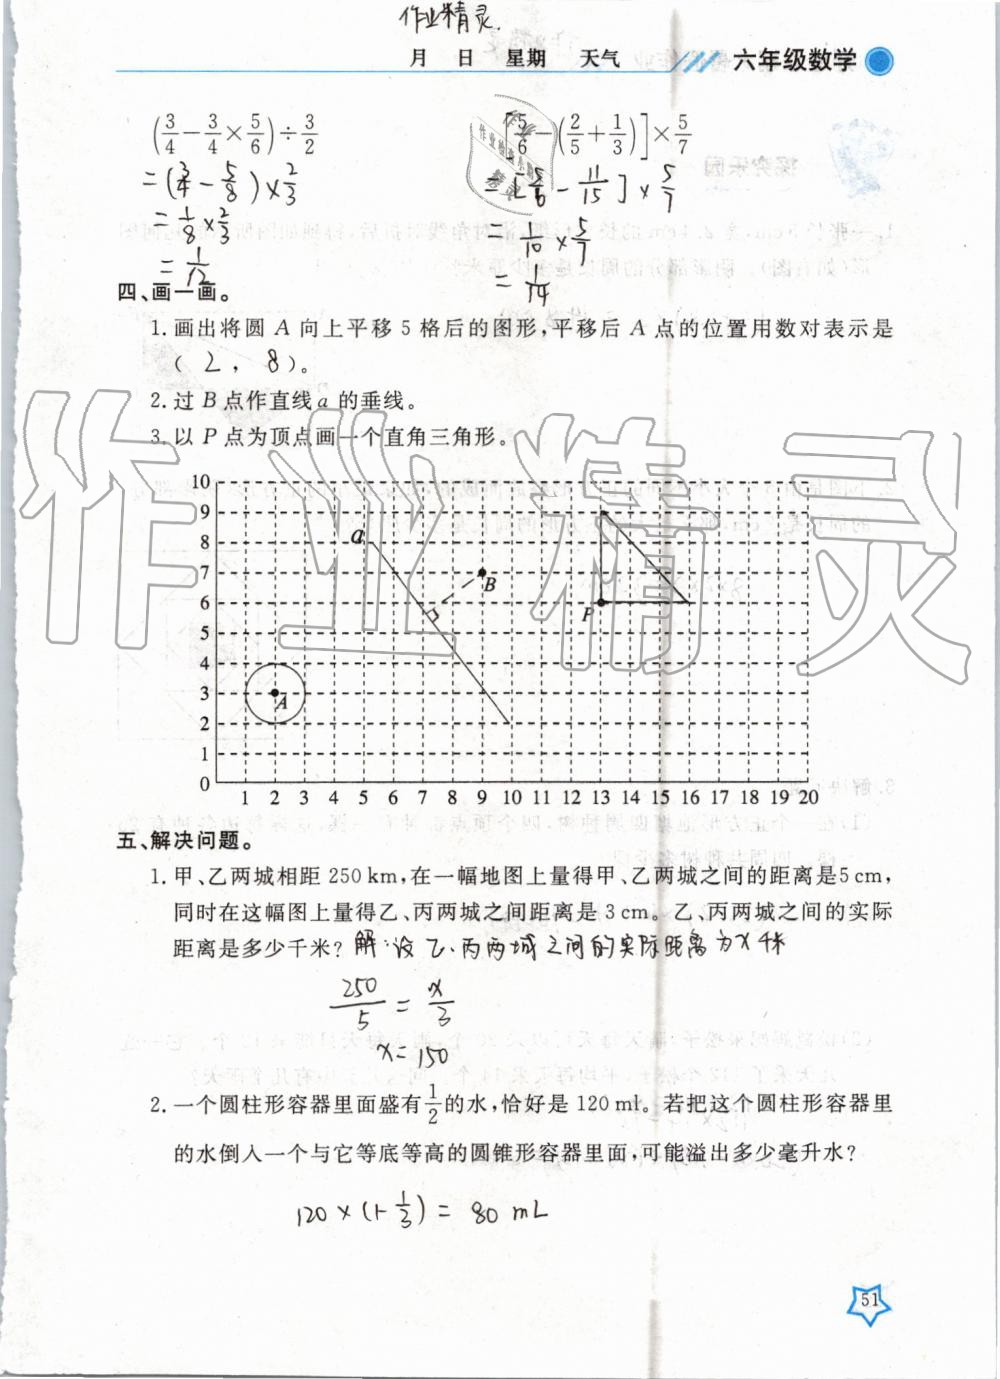 作业精灵.
月 日 星期 天气 六年级数学
(3/4 - 3/4 × 5/6) ÷ 3/2
[5/6 - (2/5 + 1/3)] × 5/7
= (3/4 - 5/8) × 2/3
= [5/6 - 11/15] × 5/7
= 1/8 × 2/3
= 1/10 × 5/7
= 1/12
= 1/14
四、画一画。
1. 画出将圆 A 向上平移 5 格后的图形,平移后 A 点的位置用数对表示是
( 2 , 8 )。
2. 过 B 点作直线 a 的垂线。
3. 以 P 点为顶点画一个直角三角形。
作业精灵
10
9
8 a
7 B
6 P
5
4
3 A
2
1
0
1 2 3 4 5 6 7 8 9 10 11 12 13 14 15 16 17 18 19 20
五、解决问题。
1. 甲、乙两城相距 250 km,在一幅地图上量得甲、乙两城之间的距离是5 cm,
同时在这幅图上量得乙、丙两城之间距离是 3 cm。乙、丙两城之间的实际
距离是多少千米? 解:设乙、丙两城之间的实际距离为x千米
250/5 = x/3
x=150
2. 一个圆柱形容器里面盛有1/2的水,恰好是 120 ml。若把这个圆柱形容器里
的水倒入一个与它等底等高的圆锥形容器里面,可能溢出多少毫升水?
120 × (1-1/3) = 80 mL
51